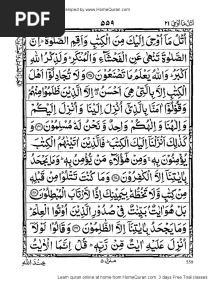 PDF
eveloped by www.HomeQuran.com
۵۵۹
اُتْلُ مَاۤ اُوْحِیَ ۲۱
اُتْلُ مَاۤ اُوْحِیَ اِلَیْكَ مِنَ الْكِتٰبِ وَاَقِمِ الصَّلٰوةَ ؕ اِنَّ
الصَّلٰوةَ تَنْهٰی عَنِ الْفَحْشَآءِ وَالْمُنْكَرِ ؕ وَلَذِكْرُ اللّٰهِ
اَكْبَرُ ؕ وَاللّٰهُ یَعْلَمُ مَا تَصْنَعُوْنَ ۝ وَلَا تُجَادِلُوْۤا اَهْلَ
الْكِتٰبِ اِلَّا بِالَّتِیْ هِیَ اَحْسَنُ ۖ اِلَّا الَّذِیْنَ ظَلَمُوْا مِنْهُمْ
وَقُوْلُوْۤا اٰمَنَّا بِالَّذِیْۤ اُنْزِلَ اِلَیْنَا وَاُنْزِلَ اِلَیْكُمْ
وَاِلٰهُنَا وَاِلٰهُكُمْ وَاحِدٌ وَّنَحْنُ لَهٗ مُسْلِمُوْنَ ۝ وَ
كَذٰلِكَ اَنْزَلْنَاۤ اِلَیْكَ الْكِتٰبَ ؕ فَالَّذِیْنَ اٰتَیْنٰهُمُ الْكِتٰبَ
یُؤْمِنُوْنَ بِهٖ ۚ وَمِنْ هٰۤؤُلَآءِ مَنْ یُّؤْمِنُ بِهٖ ؕ وَمَا یَجْحَدُ
بِاٰیٰتِنَاۤ اِلَّا الْكٰفِرُوْنَ ۝ وَمَا كُنْتَ تَتْلُوْا مِنْ قَبْلِهٖ
مِنْ كِتٰبٍ وَّلَا تَخُطُّهٗ بِیَمِیْنِكَ اِذًا لَّارْتَابَ الْمُبْطِلُوْنَ ۝
بَلْ هُوَ اٰیٰتٌۢ بَیِّنٰتٌ فِیْ صُدُوْرِ الَّذِیْنَ اُوْتُوا الْعِلْمَ ؕ
وَمَا یَجْحَدُ بِاٰیٰتِنَاۤ اِلَّا الظّٰلِمُوْنَ ۝ وَقَالُوْا لَوْلَاۤ
اُنْزِلَ عَلَیْهِ اٰیٰتٌ مِّنْ رَّبِّهٖ ؕ قُلْ اِنَّمَا الْاٰیٰتُ
عِنْدَ اللّٰهِ
منزل ۵
559
Learn quran online at home from HomeQuran.com. 3 days Free Trial classes